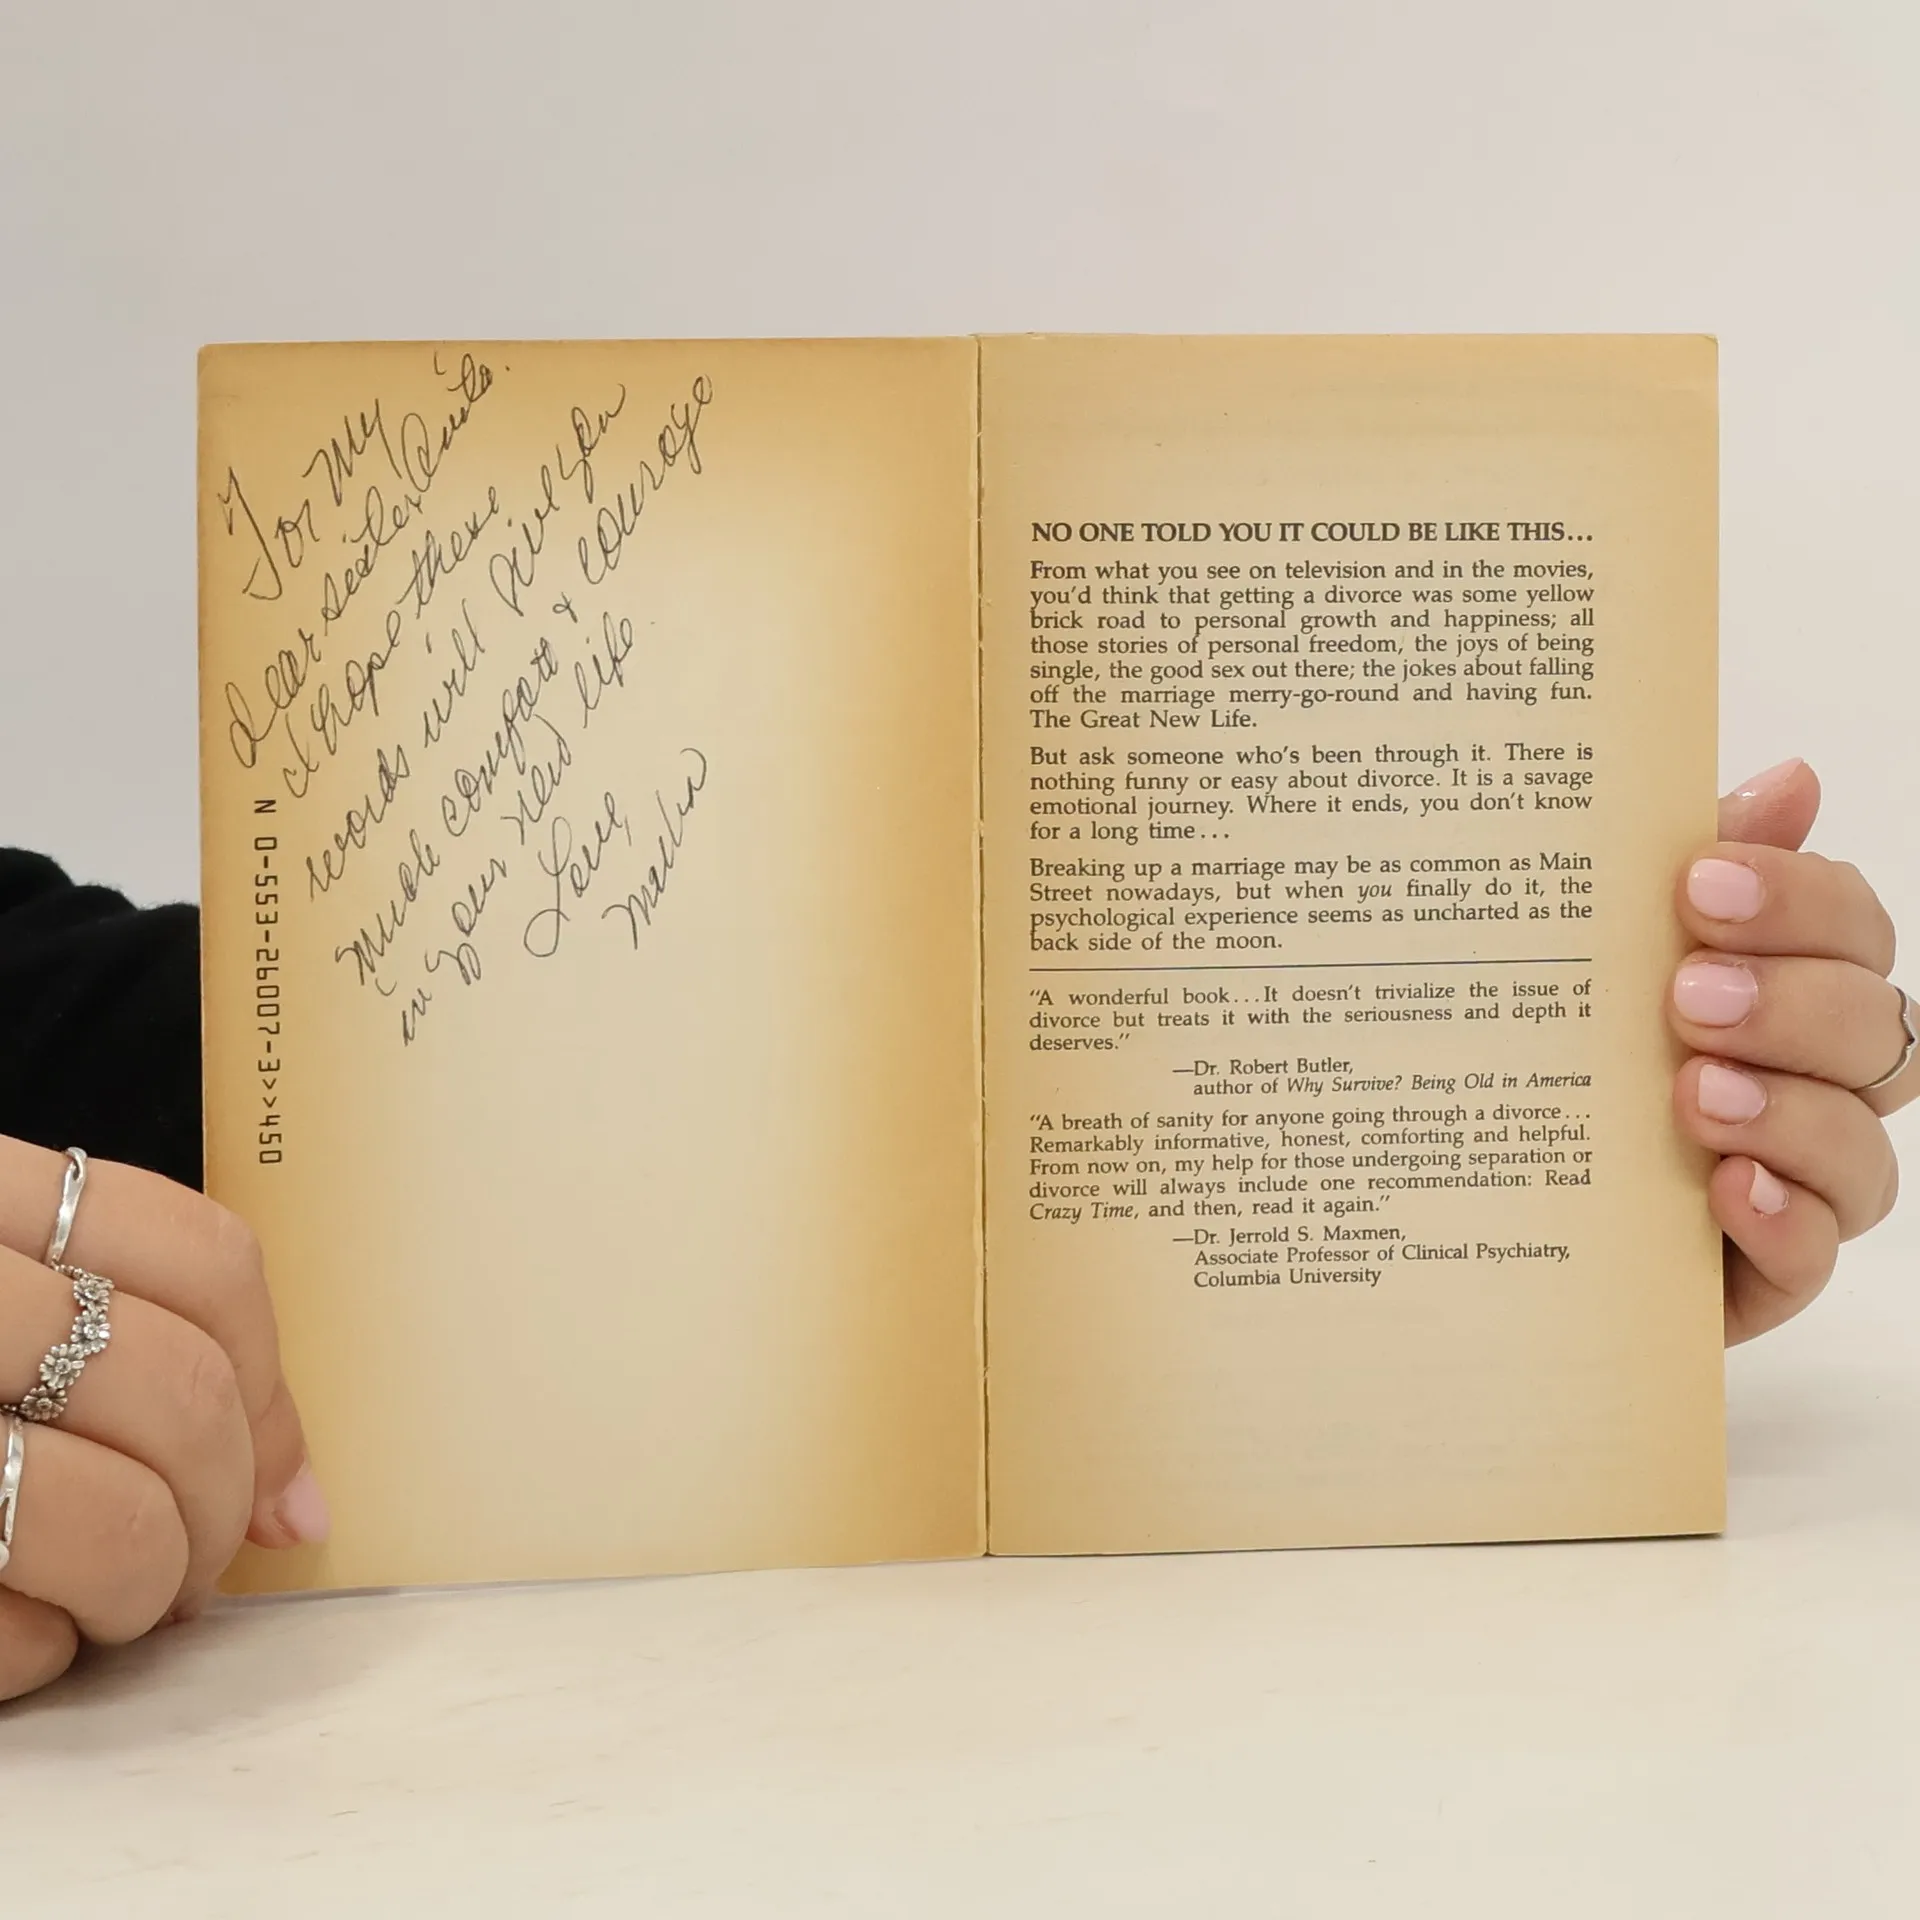 For My
dear sister Anita.
I hope these
words will give you
much comfort & courage
in your new life.
Love,
N 0-553-26007-3>>450
NO ONE TOLD YOU IT COULD BE LIKE THIS...
From what you see on television and in the movies,
you'd think that getting a divorce was some yellow
brick road to personal growth and happiness; all
those stories of personal freedom, the joys of being
single, the good sex out there; the jokes about falling
off the marriage merry-go-round and having fun.
The Great New Life.
But ask someone who's been through it. There is
nothing funny or easy about divorce. It is a savage
emotional journey. Where it ends, you don't know
for a long time...
Breaking up a marriage may be as common as Main
Street nowadays, but when you finally do it, the
psychological experience seems as uncharted as the
back side of the moon.
"A wonderful book...It doesn't trivialize the issue of
divorce but treats it with the seriousness and depth it
deserves."
—Dr. Robert Butler,
author of Why Survive? Being Old in America
"A breath of sanity for anyone going through a divorce...
Remarkably informative, honest, comforting and helpful.
From now on, my help for those undergoing separation or
divorce will always include one recommendation: Read
Crazy Time, and then, read it again."
—Dr. Jerrold S. Maxmen,
Associate Professor of Clinical Psychiatry,
Columbia University